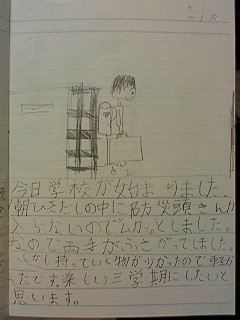 今日学校が始まりました。
朝ひきだしの中に防災頭きんが
入らないのでムカっとしました。
なので両手がふさがってしました。
しかし持っていく物が少なかったので軽
たです。楽しい三学期にしたいと
思います。